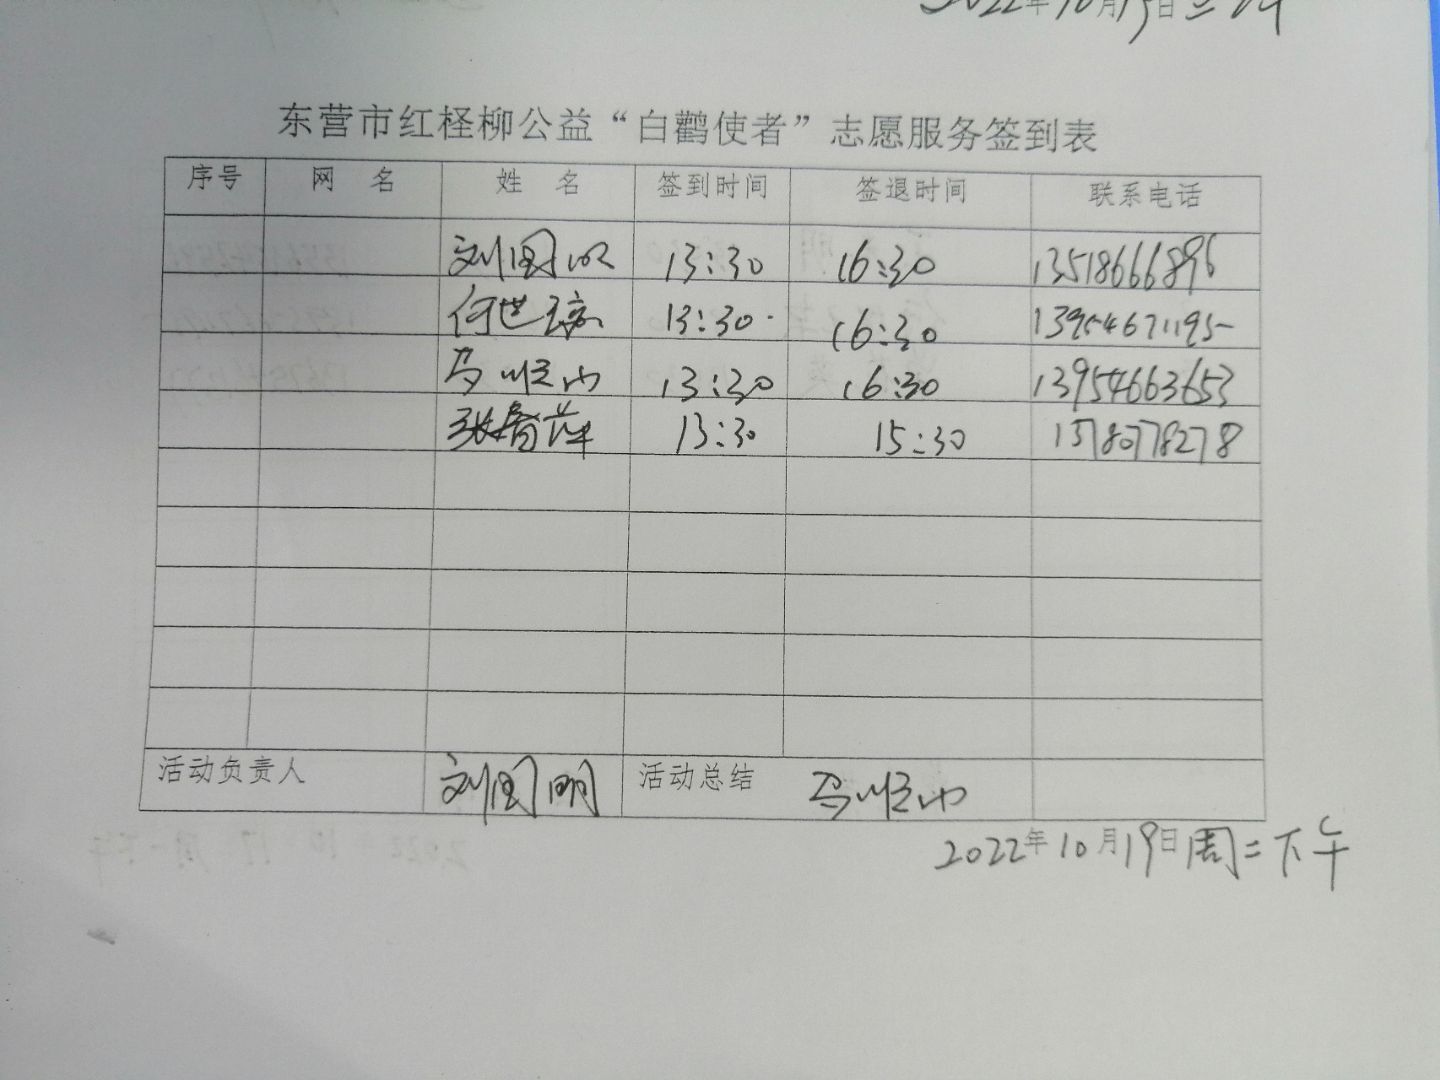 2022年10月19日
东营市红柽柳公益“白鹳使者”志愿服务签到表
序号 网 名 姓 名 签到时间 签退时间 联系电话
刘国明 13:30 16:30 13518666896
何世 13:30 16:30 13954671195
马顺山 13:30 16:30 13954663653
张春萍 13:30 15:30
活动负责人 刘国明 活动总结 马顺山
2022年10月19日周二下午